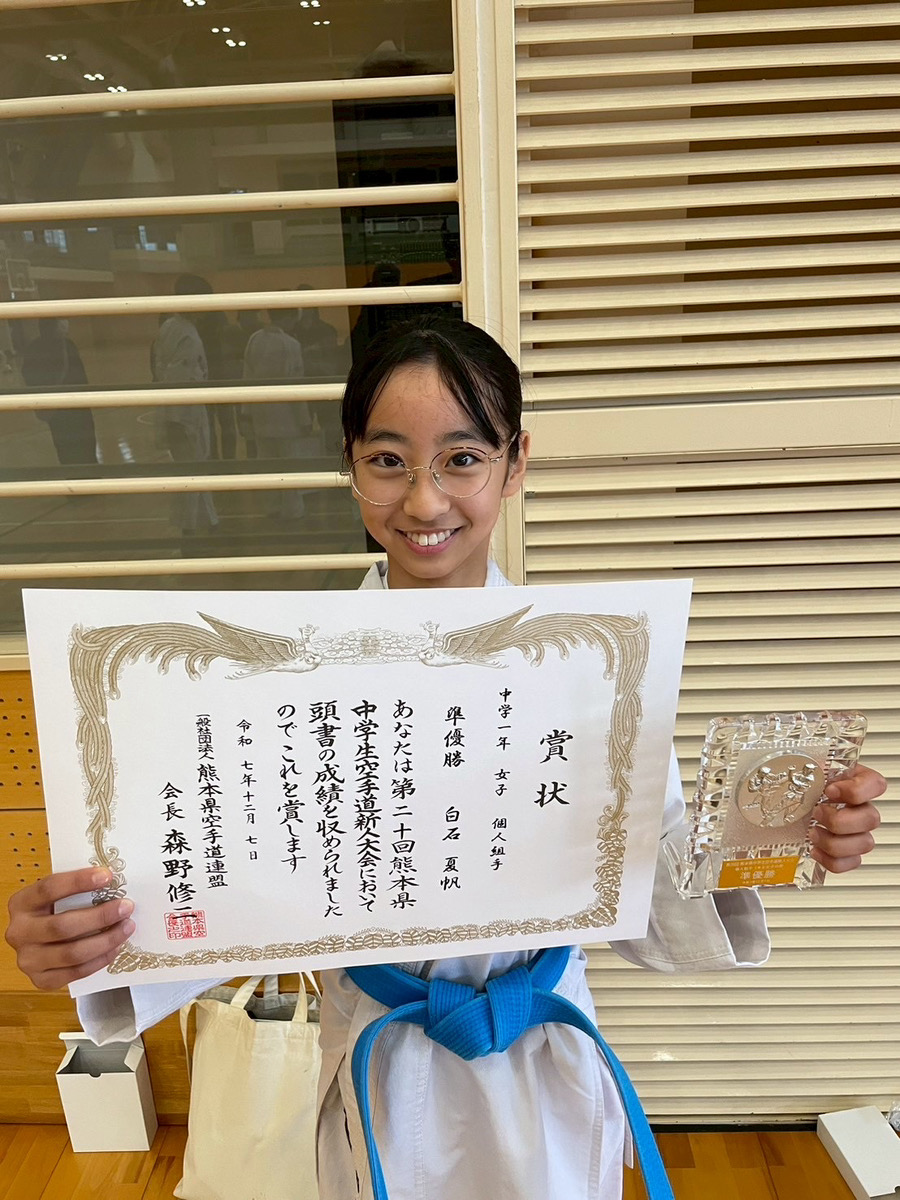 賞状
中学一年 女子 個人組手
準優勝 白石 夏帆
あなたは第二十回熊本県
中学生空手道新人大会において
頭書の成績を収められました
のでこれを賞します
令和 七年十二月 七日
一般社団法人 熊本県空手道連盟
会長 森野修二
準優勝